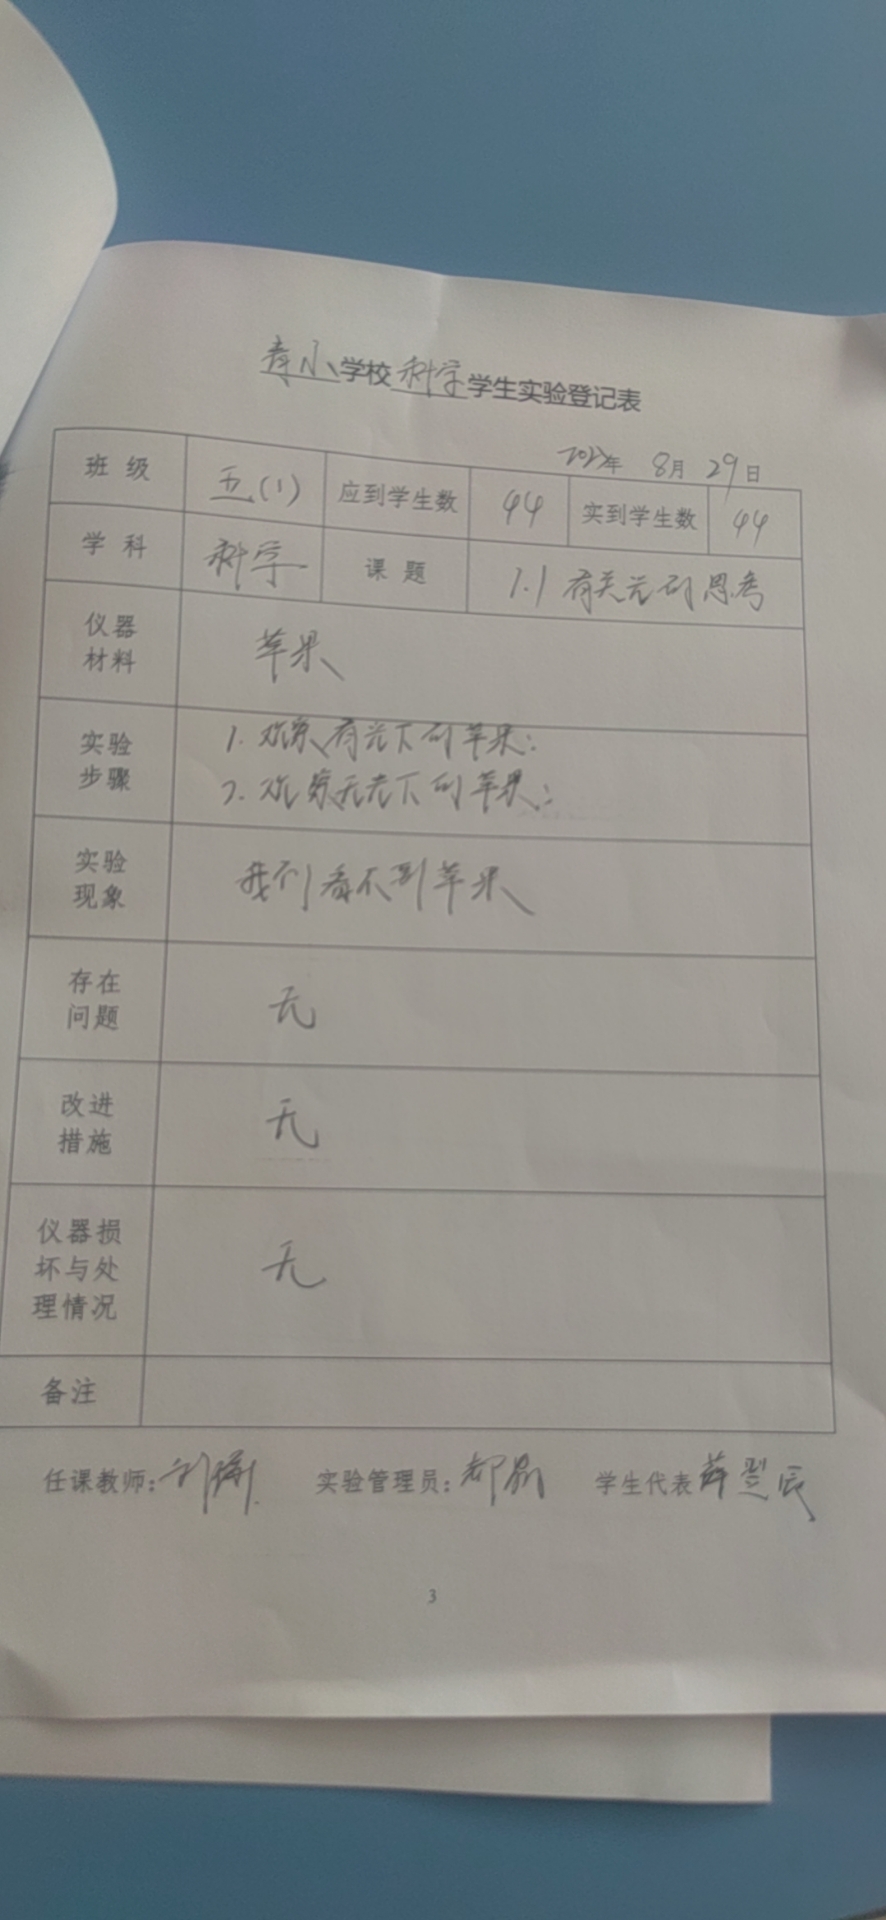 青小学校科学学生实验登记表
年 8月 29日
班级 五(1) 应到学生数 44 实到学生数 44
学科 科学 课题 1.1 有关光的思考
仪器
材料
苹果
实验
步骤
1. 观察有光下的苹果;
2. 观察无光下的苹果;
实验
现象
我们看不到苹果
存在
问题
无
改进
措施
无
仪器损
坏与处
理情况
无
备注
任课教师: 实验管理员: 学生代表 薛翌辰
3